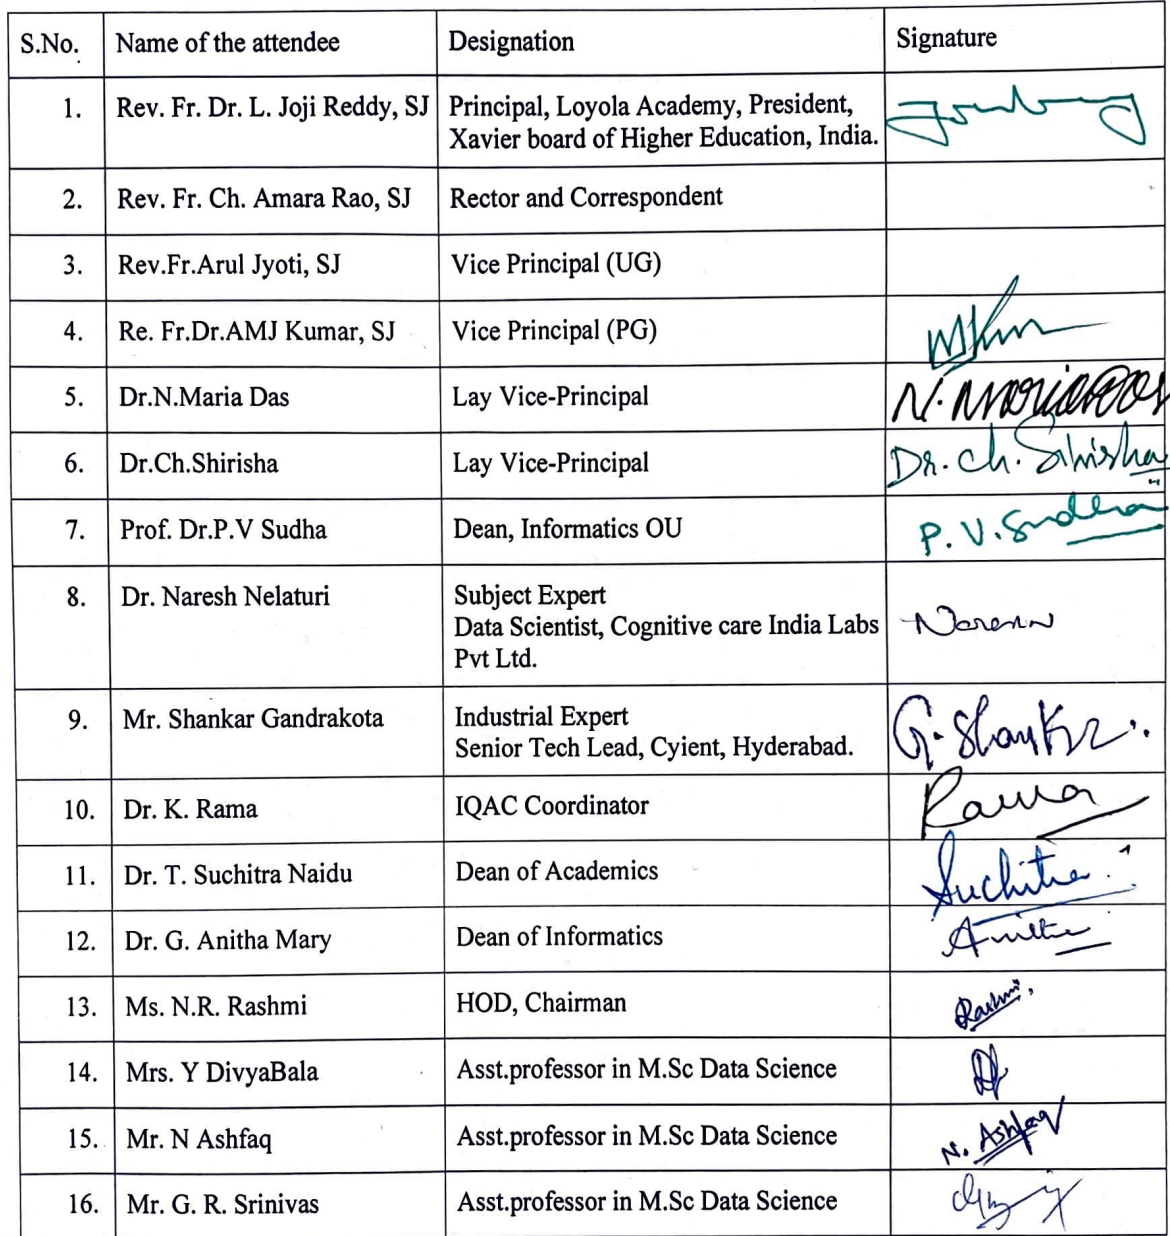 S.No. Name of the attendee Designation Signature
1. Rev. Fr. Dr. L. Joji Reddy, SJ Principal, Loyola Academy, President,
Xavier board of Higher Education, India.
2. Rev. Fr. Ch. Amara Rao, SJ Rector and Correspondent
3. Rev.Fr.Arul Jyoti, SJ Vice Principal (UG)
4. Re. Fr.Dr.AMJ Kumar, SJ Vice Principal (PG)
5. Dr.N.Maria Das Lay Vice-Principal N. MariaDas
6. Dr.Ch.Shirisha Lay Vice-Principal Dr. Ch. Shirisha
7. Prof. Dr.P.V Sudha Dean, Informatics OU P. V. Sudha
8. Dr. Naresh Nelaturi Subject Expert
Data Scientist, Cognitive care India Labs
Pvt Ltd.
9. Mr. Shankar Gandrakota Industrial Expert G. Shankar
Senior Tech Lead, Cyient, Hyderabad.
10. Dr. K. Rama IQAC Coordinator Rama
11. Dr. T. Suchitra Naidu Dean of Academics Suchitra
12. Dr. G. Anitha Mary Dean of Informatics Anitha
13. Ms. N.R. Rashmi HOD, Chairman Rashmi
14. Mrs. Y DivyaBala Asst.professor in M.Sc Data Science
15. Mr. N Ashfaq Asst.professor in M.Sc Data Science N. Ashfaq
16. Mr. G. R. Srinivas Asst.professor in M.Sc Data Science